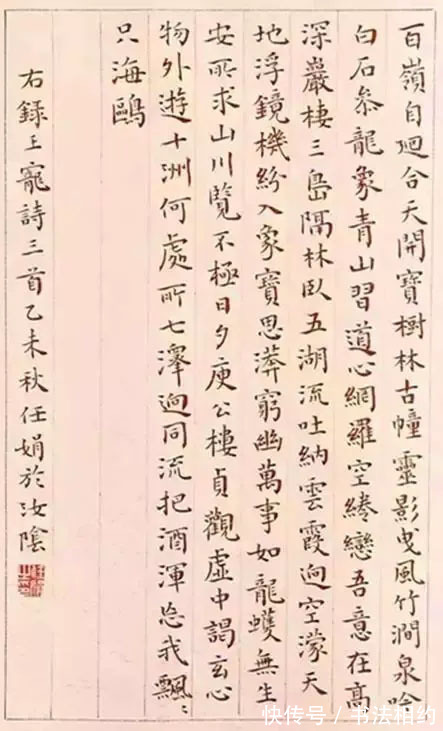 百嶺自廻合天開寶樹林古幢靈影曳風竹澗泉吟
白石叅龍象青山習道心網羅空綣戀吾意在高
深巖棲三島隔林臥五湖流吐納雲霞逈空濛天
地浮鏡機紛入象寶思漭窮幽萬事如龍蠖無生
安所求山川覽不極日夕庾公樓貞觀虛中謁玄心
物外遊十洲何處所七澤逈同流把酒渾忘我飄〻
只海鷗
右錄王寵詩三首乙未秋任娟於汝陰
快传号/书法相约